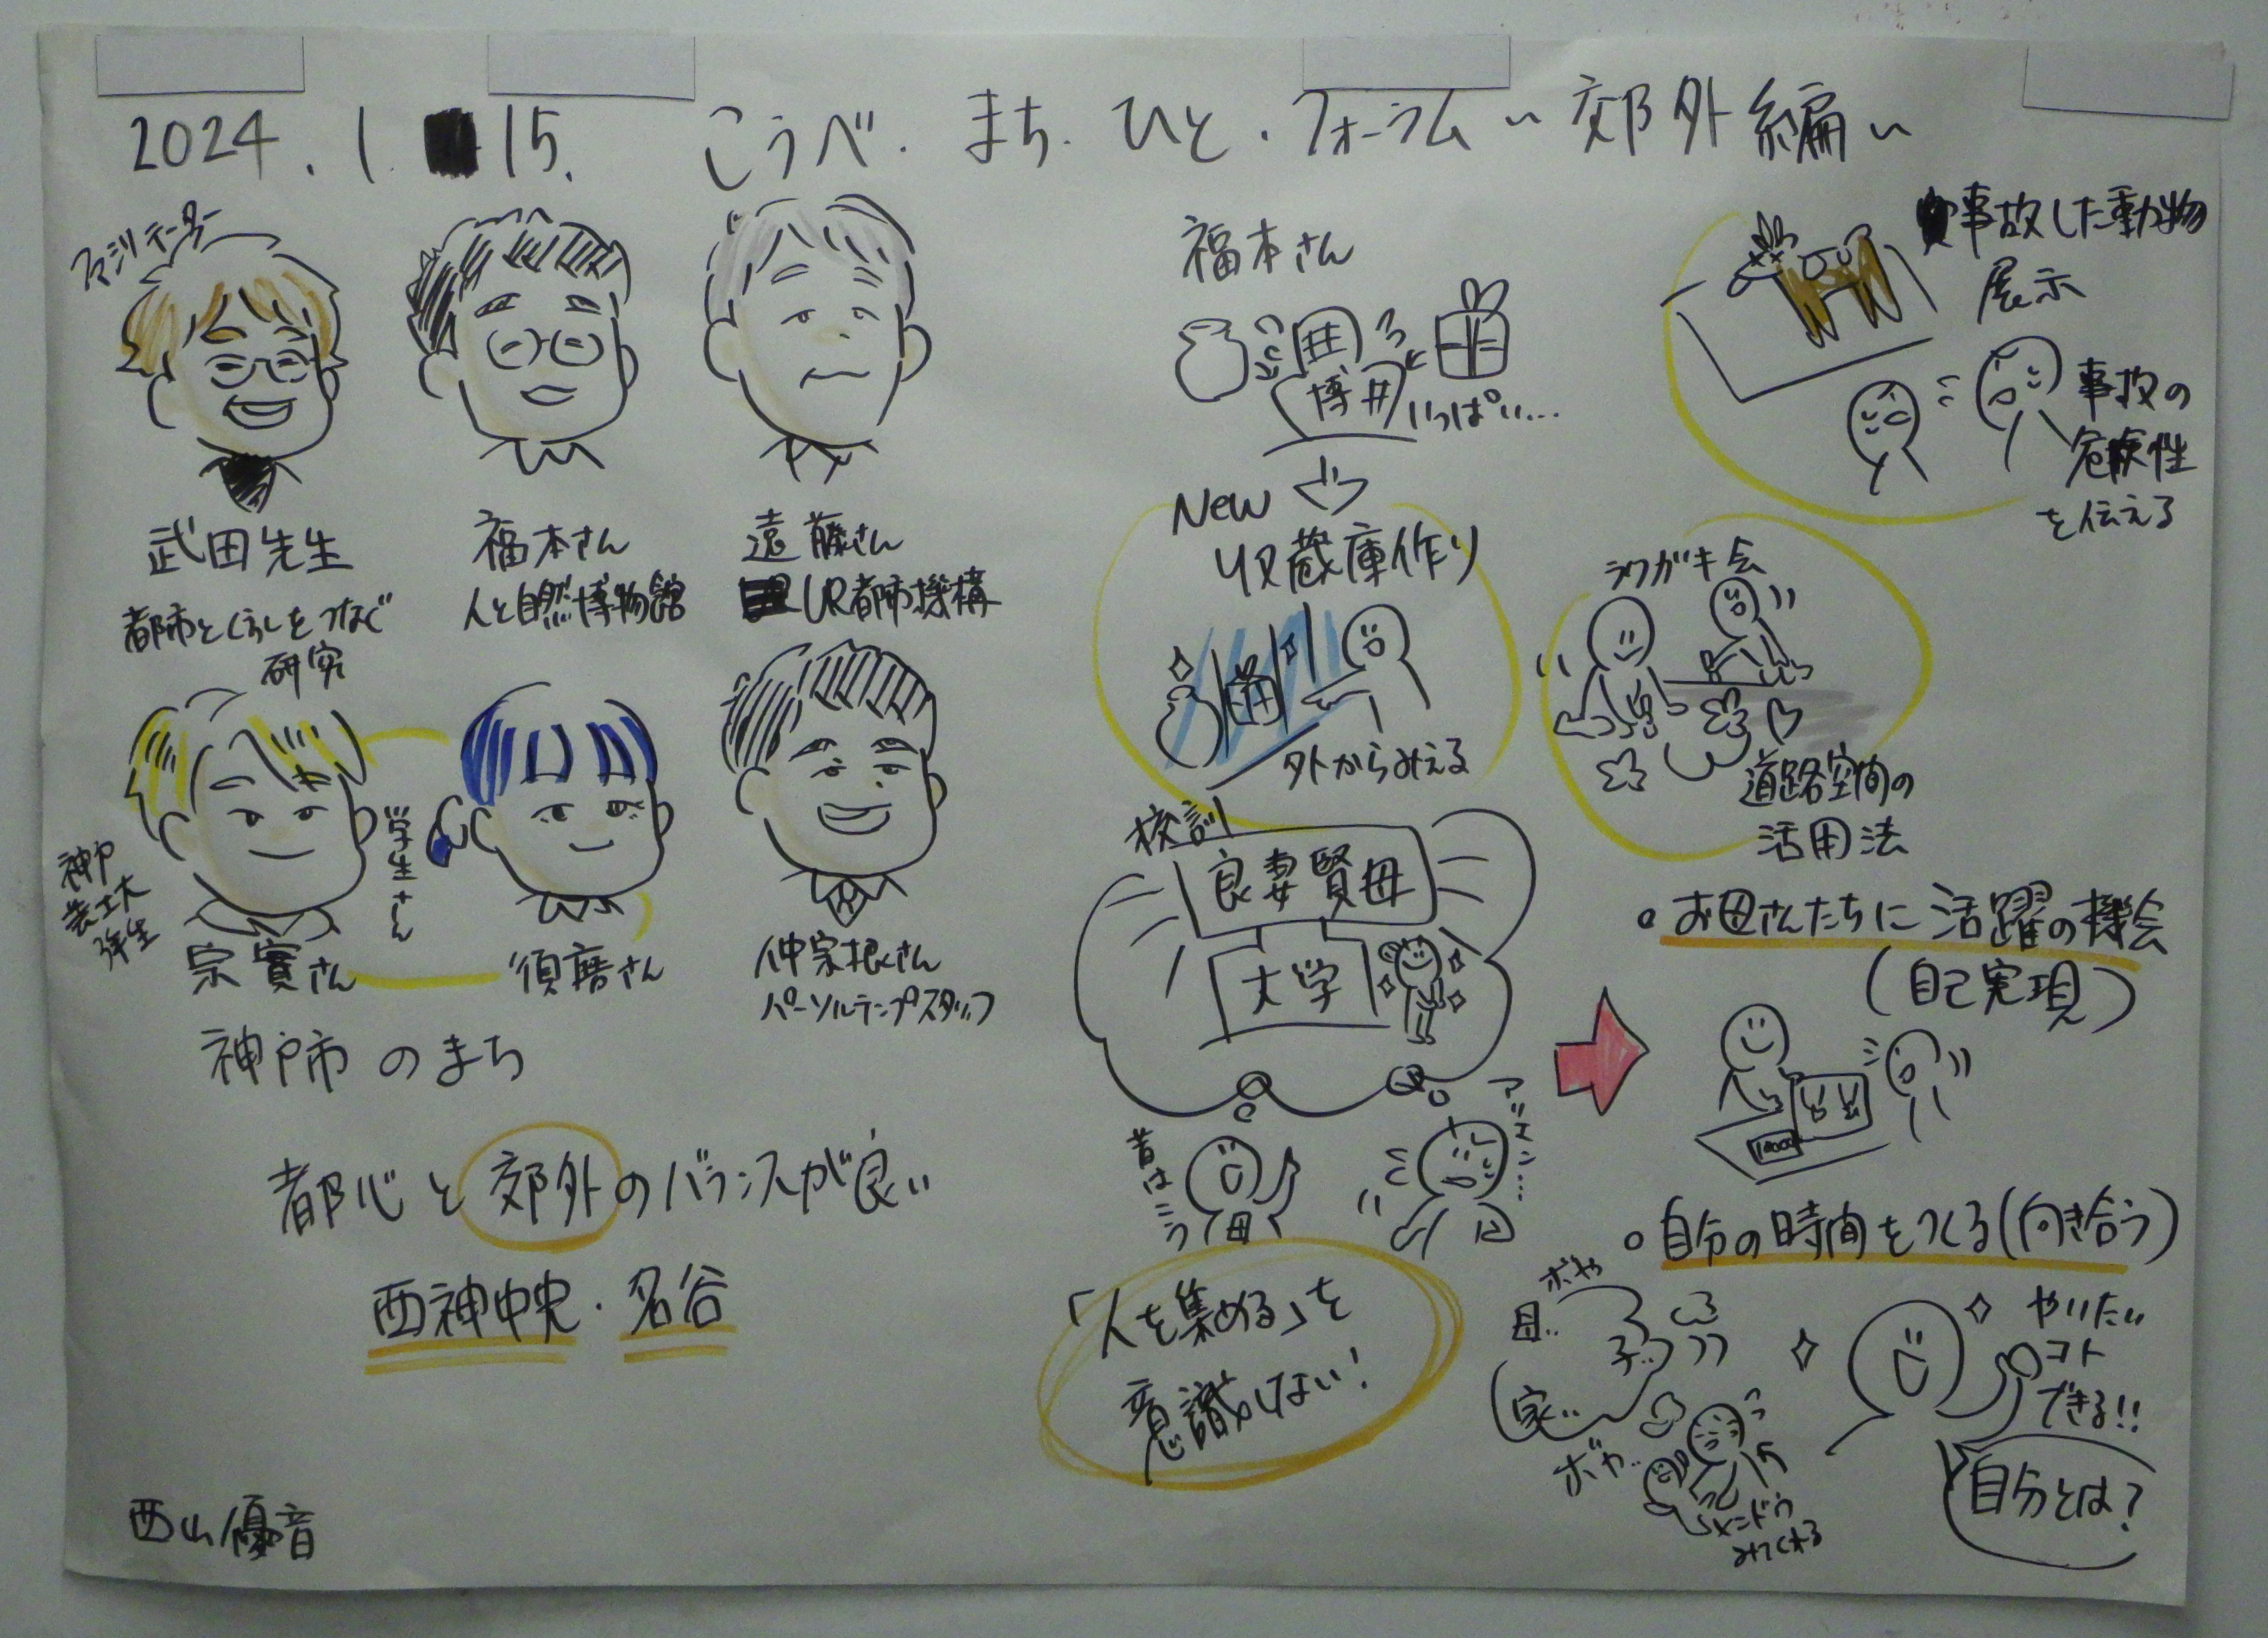 2024.1.15. こうべ.まち.ひと.フォーラム〜郊外編〜
武田先生
都市とくらしをつなぐ
研究
福本さん
人と自然博物館
遠藤さん
UR都市機構
神戸
芸工大
学生さん
宗實さん
須磨さん
仲宗根さん
パーソルテンプスタッフ
神戸市のまち
都心と郊外のバランスが良い
西神中央・名谷
西山優音
福本さん
博
いっぱい…
New
収蔵庫作り
外からみえる
事故した動物
展示
事故の
危険性
を伝える
ラクガキ会
道路空間の
活用法
校訓
良妻賢母
大学
昔はこう
母
「人を集める」を
意識しない!
。お母さんたちに活躍の機会
(自己実現)
。自分の時間をつくる(向き合う)
ボヤ
母..
子..
家..
ボヤ..
メンドウ
みてくれる
やりたい
コト
できる!!
自分とは?